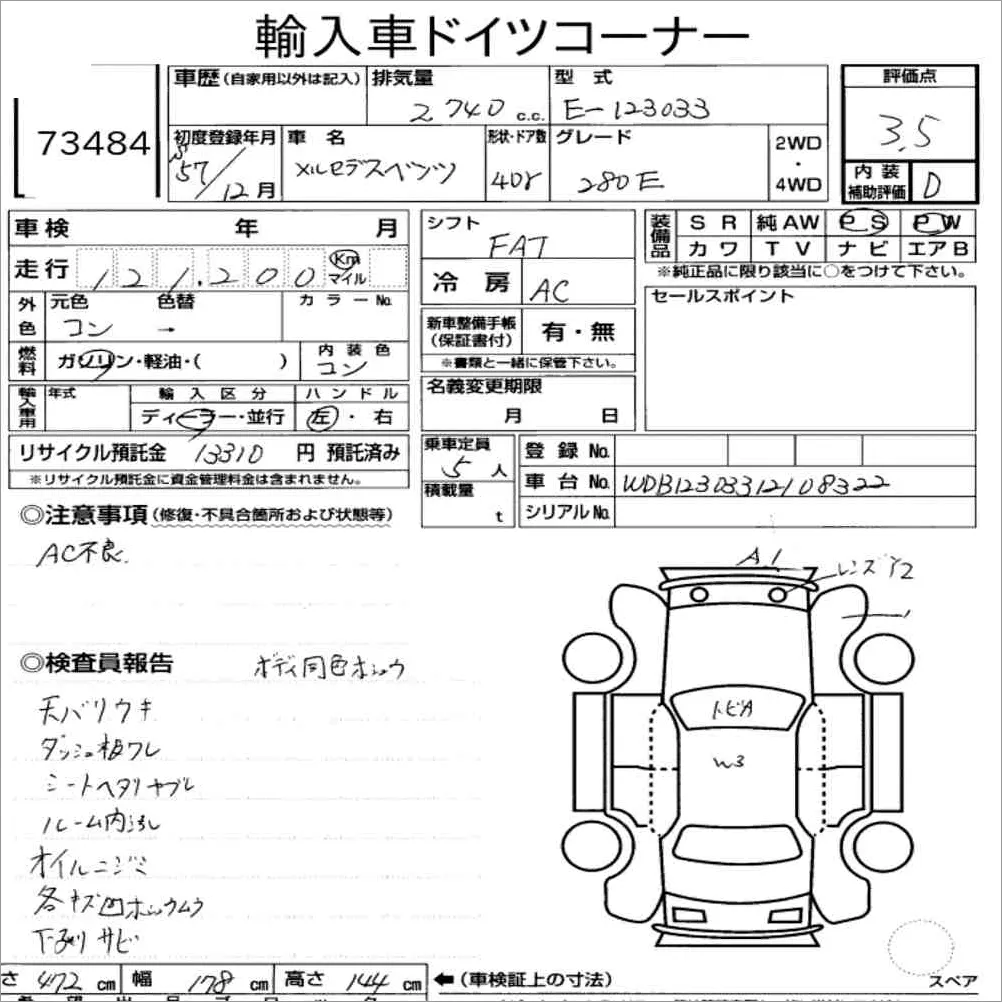 輸入車ドイツコーナー
73484
車歴(自家用以外は記入) 排気量 2740 c.c. 型 式 E-123033 評価点 3.5
初度登録年月 S57/12月 車 名 メルセデスベンツ 形状・ドア数 4Dr グレード 280E 2WD・4WD 内装補助評価 D
車検 年 月
走行 121.200 Km マイル
外色 元色 コン 色替 → カラーNo.
燃料 ガソリン・軽油・( ) 内装色 コン
輸入車用 年式 輸入区分 ディーラー・並行 ハンドル 左・右
リサイクル預託金 13310 円 預託済み
※リサイクル預託金に資金管理料金は含まれません。
シフト FAT
冷 房 AC
新車整備手帳(保証書付) 有・無
※書類と一緒に保管下さい。
名義変更期限
月 日
装備品 SR 純AW PS PW
カワ TV ナビ エアB
※純正品に限り該当に○をつけて下さい。
セールスポイント
乗車定員 5人
積載量 t
登 録 No.
車 台 No. WDB12303312108322
シリアルNo.
◎注意事項(修復・不具合箇所および状態等)
AC不良.
◎検査員報告 ボディ同色ホシュウ
天バリウキ
ダッシュ板ワレ
シートヘタリヤブレ
ルーム内汚レ
オイルニジミ
各キズ凹ホシュウムラ
下廻リサビ
A1
レンズY2
トビA
W3
スペア
さ 472 cm 幅 178 cm 高さ 144 cm ←(車検証上の寸法)